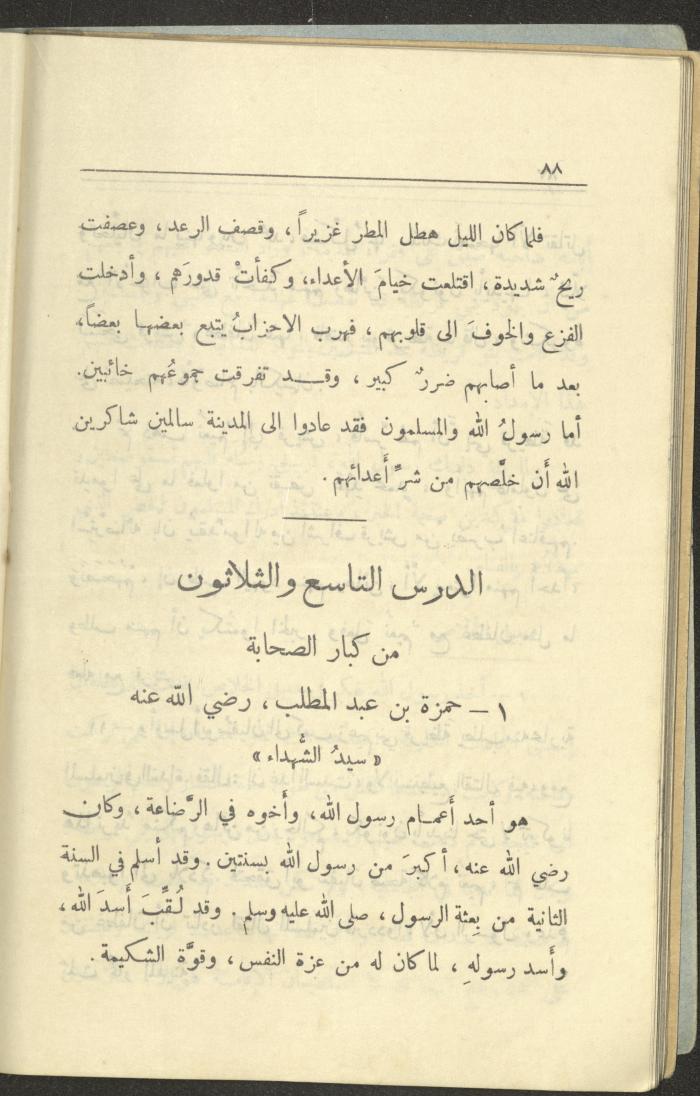 ٨٨
فلما كان الليل هطل المطر غزيراً، وقصف الرعد، وعصفت
ريحٌ شديدة، اقتلعت خيامَ الأعداء، وكفأتْ قدورَهم، وأدخلت
الفزع والخوفَ الى قلوبهم، فهرب الاحزابُ يتبع بعضها بعضاً،
بعد ما أصابهم ضررٌ كبير، وقد تفرقت جموعُهم خائبين.
أما رسولُ الله والمسلمون فقد عادوا الى المدينة سالمين شاكرين
الله أَن خلَّصهم من شرِّ أَعدائهم.
الدرس التاسع والثلاثون
من كبار الصحابة
١ – حمزة بن عبد المطلب، رضي الله عنه
« سيدُ الشُّهداء »
هو أحد أَعمام رسول الله، وأَخوه في الرَّضاعة، وكان
رضي الله عنه، أكبرَ من رسول الله بسنتين. وقد أسلم في السنة
الثانية من بِعثة الرسول، صلى الله عليه وسلم. وقد لُقِّبَ أَسدَ الله،
وأَسد رسولهِ، لما كان له من عزة النفس، وقوَّة الشكيمة.